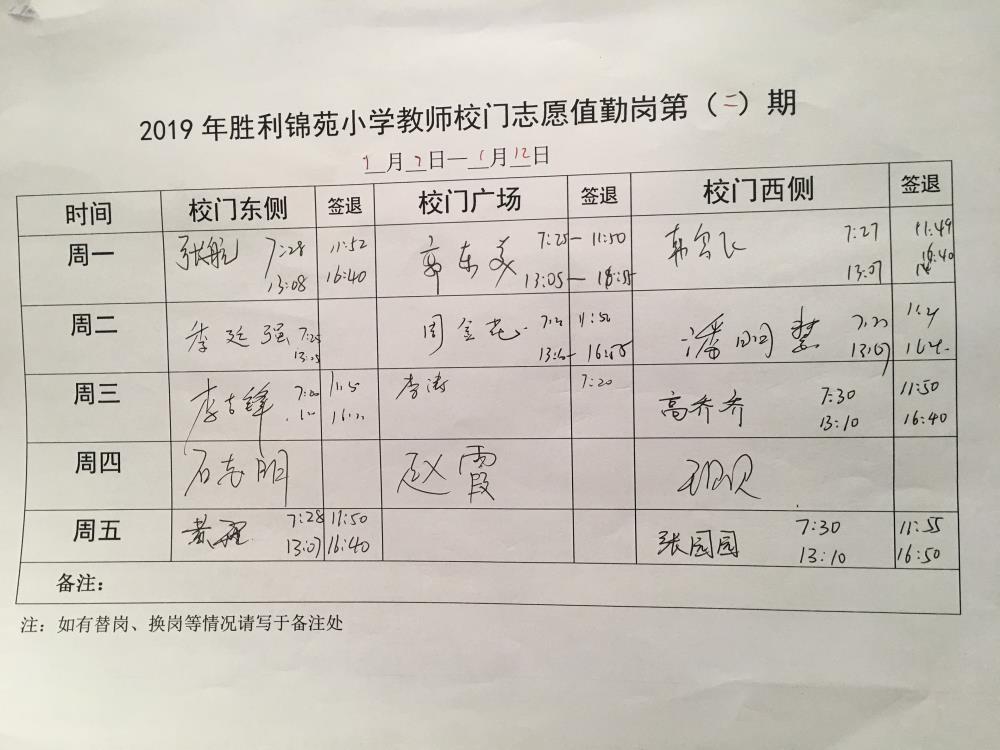 2019年胜利锦苑小学教师校门志愿值勤岗第（二）期
月7日—1月12日
时间 校门东侧 签退 校门广场 签退 校门西侧 签退
周一 张航 7:28 11:52 郭东美 7:25— 11:50 7:27 11:49
13:08 16:40 13:05— 13:07 16:40
周二 季延强 7:25 周金花 11:50 潘 慧
13:05 16:05 13:07
周三 李吉锋 7:20 11:50 李涛 7:20 高乔乔 7:30 11:50
13:10 16:40
周四 石志明 赵霞
周五 黄 7:28 11:50 张园园 7:30 11:55
13:07 16:40 13:10 16:50
备注：
注：如有替岗、换岗等情况请写于备注处